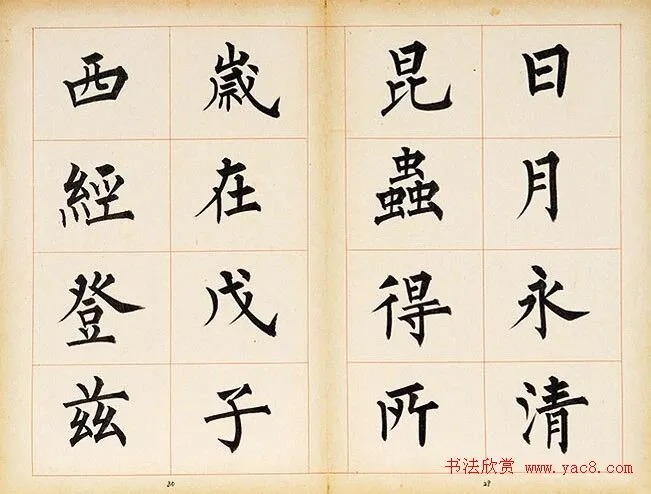 日月永清
昆蟲得所
歲在戊子
西經登茲
30
29
书法欣赏 www.yac8.com